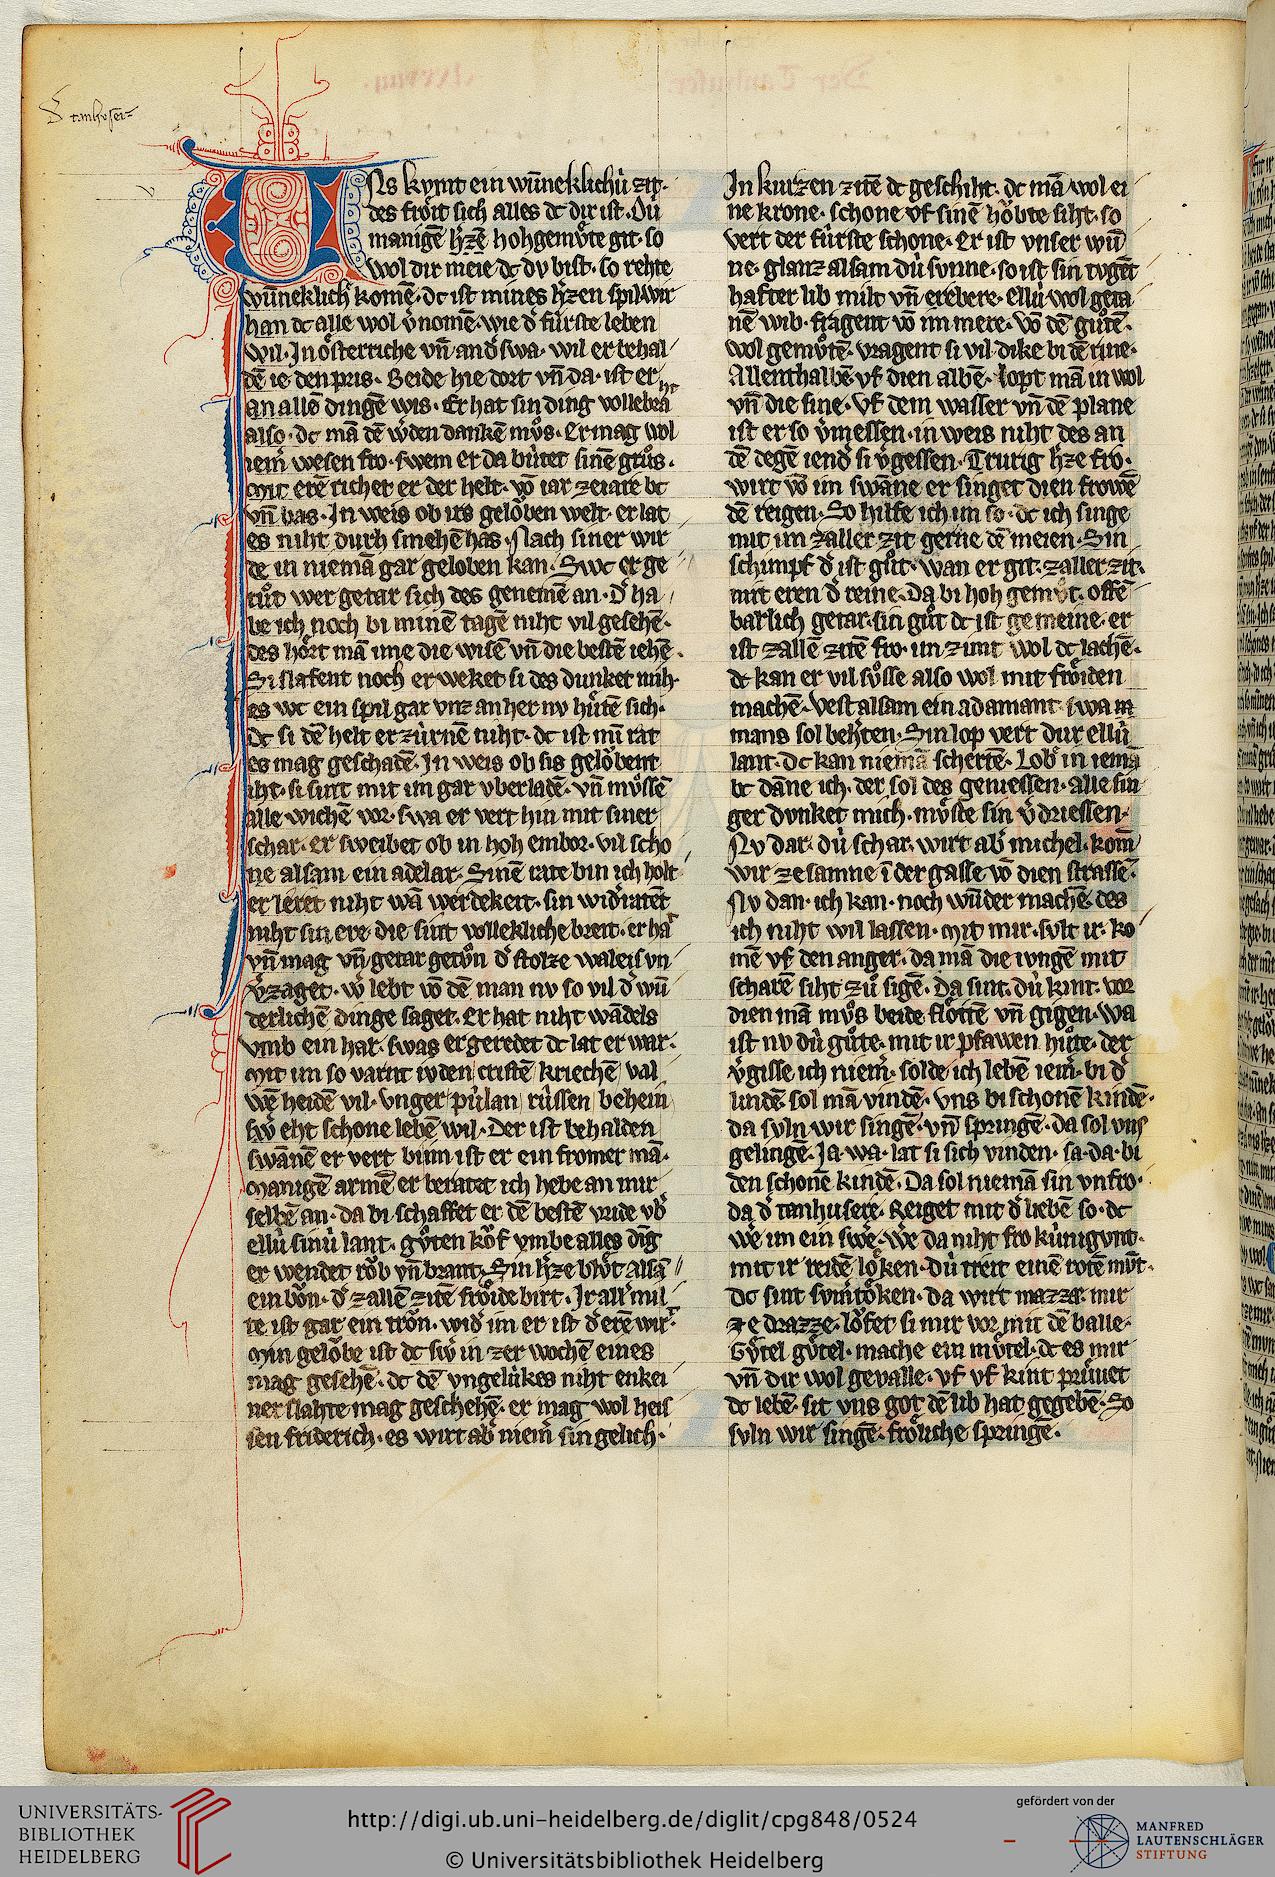 tanhuser
VNs kvmt ein wu̅neklichú zit·
des frȯit sich alles dc dir ist· Dú
manige̅ h̾ze̅ hohgemv̊te git· so
wol dir meie dc dv bist· so rehte
wu̅neklich̾ kome̅· dc ist mines h̾zen spil· wir
han dc alle wol v̾nome̅· wie d̾ fúrste leben
wil· Jn ȯsterriche vn̅ and̾swa· wil er behal
de̅ ie den pris· Beide hie dort vn̅ da· ist er
an alle̅ dinge̅ wis· Er hat sin ding vollebraht
also· dc ma̅ de̅ w̾den danke̅ mv̊s· Er mag wol
iem̾ wesen fro· swem er da bútet sine̅ grůs·
Mit ere̅ richet er der helt· vo̅ iar ze iare bc
vn̅ bas· Jn weis ob irs gelȯben welt· er lat
es niht durh smehe̅ has· Nach siner wir
de in niema̅ gar geloben kan· Swc er ge
tůt wer getar sich des geneme̅ an· D̾ ha
be ich noch bi mine̅ tage̅ niht vil gesehe̅·
des hȯrt ma̅ ime die wise̅ vn̅ die beste̅ iehe̅·
Si slafent noch er weket si des dunket mih·
es wc ein spil gar vnz an her nv hu̇te̅ sich·
Dc si de̅ helt erzúrne̅ niht· dc ist mi̅ rat
es mag geschate̅· Jn weis ob sis gelȯbent
iht· si sint mit im gar vberlade̅· vn̅ mu̇sse̅
alle wiche̅ vor· swa er vert hin mit siner
schar· er sweibet ob in hoh embor· vil scho
ne alsam ein adelar· Sine̅ rate bin ich holt
er leret niht wa̅ werdekeit· sin wid̾rate̅t
niht sin ere· die sint vollekliche breit· er ha̾
vn̅ mag vn̅ getar getůn d̾ stolze waleis vn
v̾zaget· w̾ lebt vo̅ de̅ man nv so vil d̾ wu̅
derliche̅ dinge saget· Er hat niht wa̅dels
vmb ein har· swas er geredet dc lat er war·
Mit im so varnt ivden criste̅ krieche̅ val
we̅ heide̅ vil· vnger púlan rússen behein
sw̾ eht schone lebe̅ wil· Der ist behalden
swa̅ne̅ er vert binn ist er ein fromer ma̅·
Manige̅ arme̅ er beratet ich hebe an mir
selbe̅ an· da bi schaffet er de̅ beste̅ vride vb̾
ellú sinú lant· gůten kȯf vmbe alles ding
er wendet rȯb vn̅ brant· Sin h̾ze blůt alsa̅
ein bȯn· d̾ zalle̅ zite̅ frȯide birt· Jr all̾ mil
te ist gar ein trȯn· wid̾ im er ist d̾ ere̅ wirt·
Min gelȯbe ist dc sw̾ in zer woche̅ eines
mag gesehe̅· dc de̅ vngelúkes niht enkei
ner slahte mag geschehe̅· er mag wol heis
sen friderich· es wirt ab̾ niem̾ sin gelich·
Jn kurzen zite̅ dc geschiht· dc ma̅ wol ei
ne krone· schone vf sine̅ hȯbte siht· so
vert der fúrste schone· Er ist vnser wu̅
ne· glanz alsam dú sunne· so ist sin tvge̅t
hafter lib milt vn̅ erebere· Ellú wol geta
ne̅ wib· fragent vo̅ im mere· Vo̅ de̅ gůte̅·
wol gemůte̅· vragent si vil dike bi de̅ rine·
Allenthalbe̅ vf dien albe̅· lopt ma̅ in wol
vn̅ die sine· Vf dem wasser vn̅ de̅ plane
ist er so v̾messen· in weis niht des an
de̅ dege̅ iend̾ si v̾gessen· Trurig h̾ze fro·
wirt vo̅ im swa̅ne er singet dien frowe̅
de̅ reigen· So hilfe ich im so· dc ich singe
mit im zaller zit gerne de̅ meien· Sin
schimpf d̾ ist gůt· wan er git· zaller zit·
mit eren d̾ reine· Da bi hoh gemůt· offe̅
barlich getar· sin gůt dc ist gemeine· er
ist zalle̅ zite̅ fro· im zimt wol dc lache̅·
dc kan er vil su̇sse also wol mit frȯiden
mache̅· vest alsam ein adamant swa in
mans sol beh̾ten· Sin lop vert dur ellú
lant· dc kan niema̅ scherte̅· Lob̾ in iema̅
bc da̅ne ich· der sol des geniessen· alle sin
ger dvnket mich· mv̇ste sin v̾driessen·
Nv dar· dú schar· wirt ab̾ michel· kom̅
wir zesamne i̅ der gasse· vo̅ dien strasse̅·
Nv dan· ich kan· noch wu̅der mache̅· des
ich niht wil lassen· Mit mir· svlt ir· ko
me̅ vf den anger· da ma̅ die ivnge̅ mit
schare̅ siht zů sige̅· Da sint· dú kint· vor
dien ma̅ mv̊s beide flȯtte̅ vn̅ gigen· Wa
ist nv dú gůte· mit ir pfawen hůte· der
v̾gisse ich niem̾· solde ich lebe̅ iem̾· bi d̾
linde̅· sol ma̅ vinde̅· vns bi schone̅ kinde̅·
da svln wir singe̅· vn̅ springe̅· da sol vns
gelinge̅· Ja· wa· lat si sich vinden· sa· da· bi
den schone̅ kinde̅· Da sol niema̅ sin vnfro·
da d̾ tanhusere· Reiget mit d̾ liebe̅ so· dc
we im ein sw̾e· We da niht fro kúnigvnt·
mit ir reide̅ lȯken· dú treit eine̅ rote̅ mv̊t·
Dc sint svm̾token· da wirt mazze· mir
ze drazze· lȯfet si mir vor mit de̅ balle·
Gv̇tel gv̇tel· mache ein mv̇tel· dc es mir
vn̅ dir wol gevalle· vf vf kint prúvet
dc lebe̅· sit vns got de̅ lib hat gegebe̅· So
svln wir singe̅· frȯliche springe̅·
UNIVERSITÄTS-
BIBLIOTHEK
HEIDELBERG
http://digi.ub.uni-heidelberg.de/diglit/cpg848/0524
© Universitätsbibliothek Heidelberg
gefördert von der
MANFRED
LAUTENSCHLÄGER
STIFTUNG